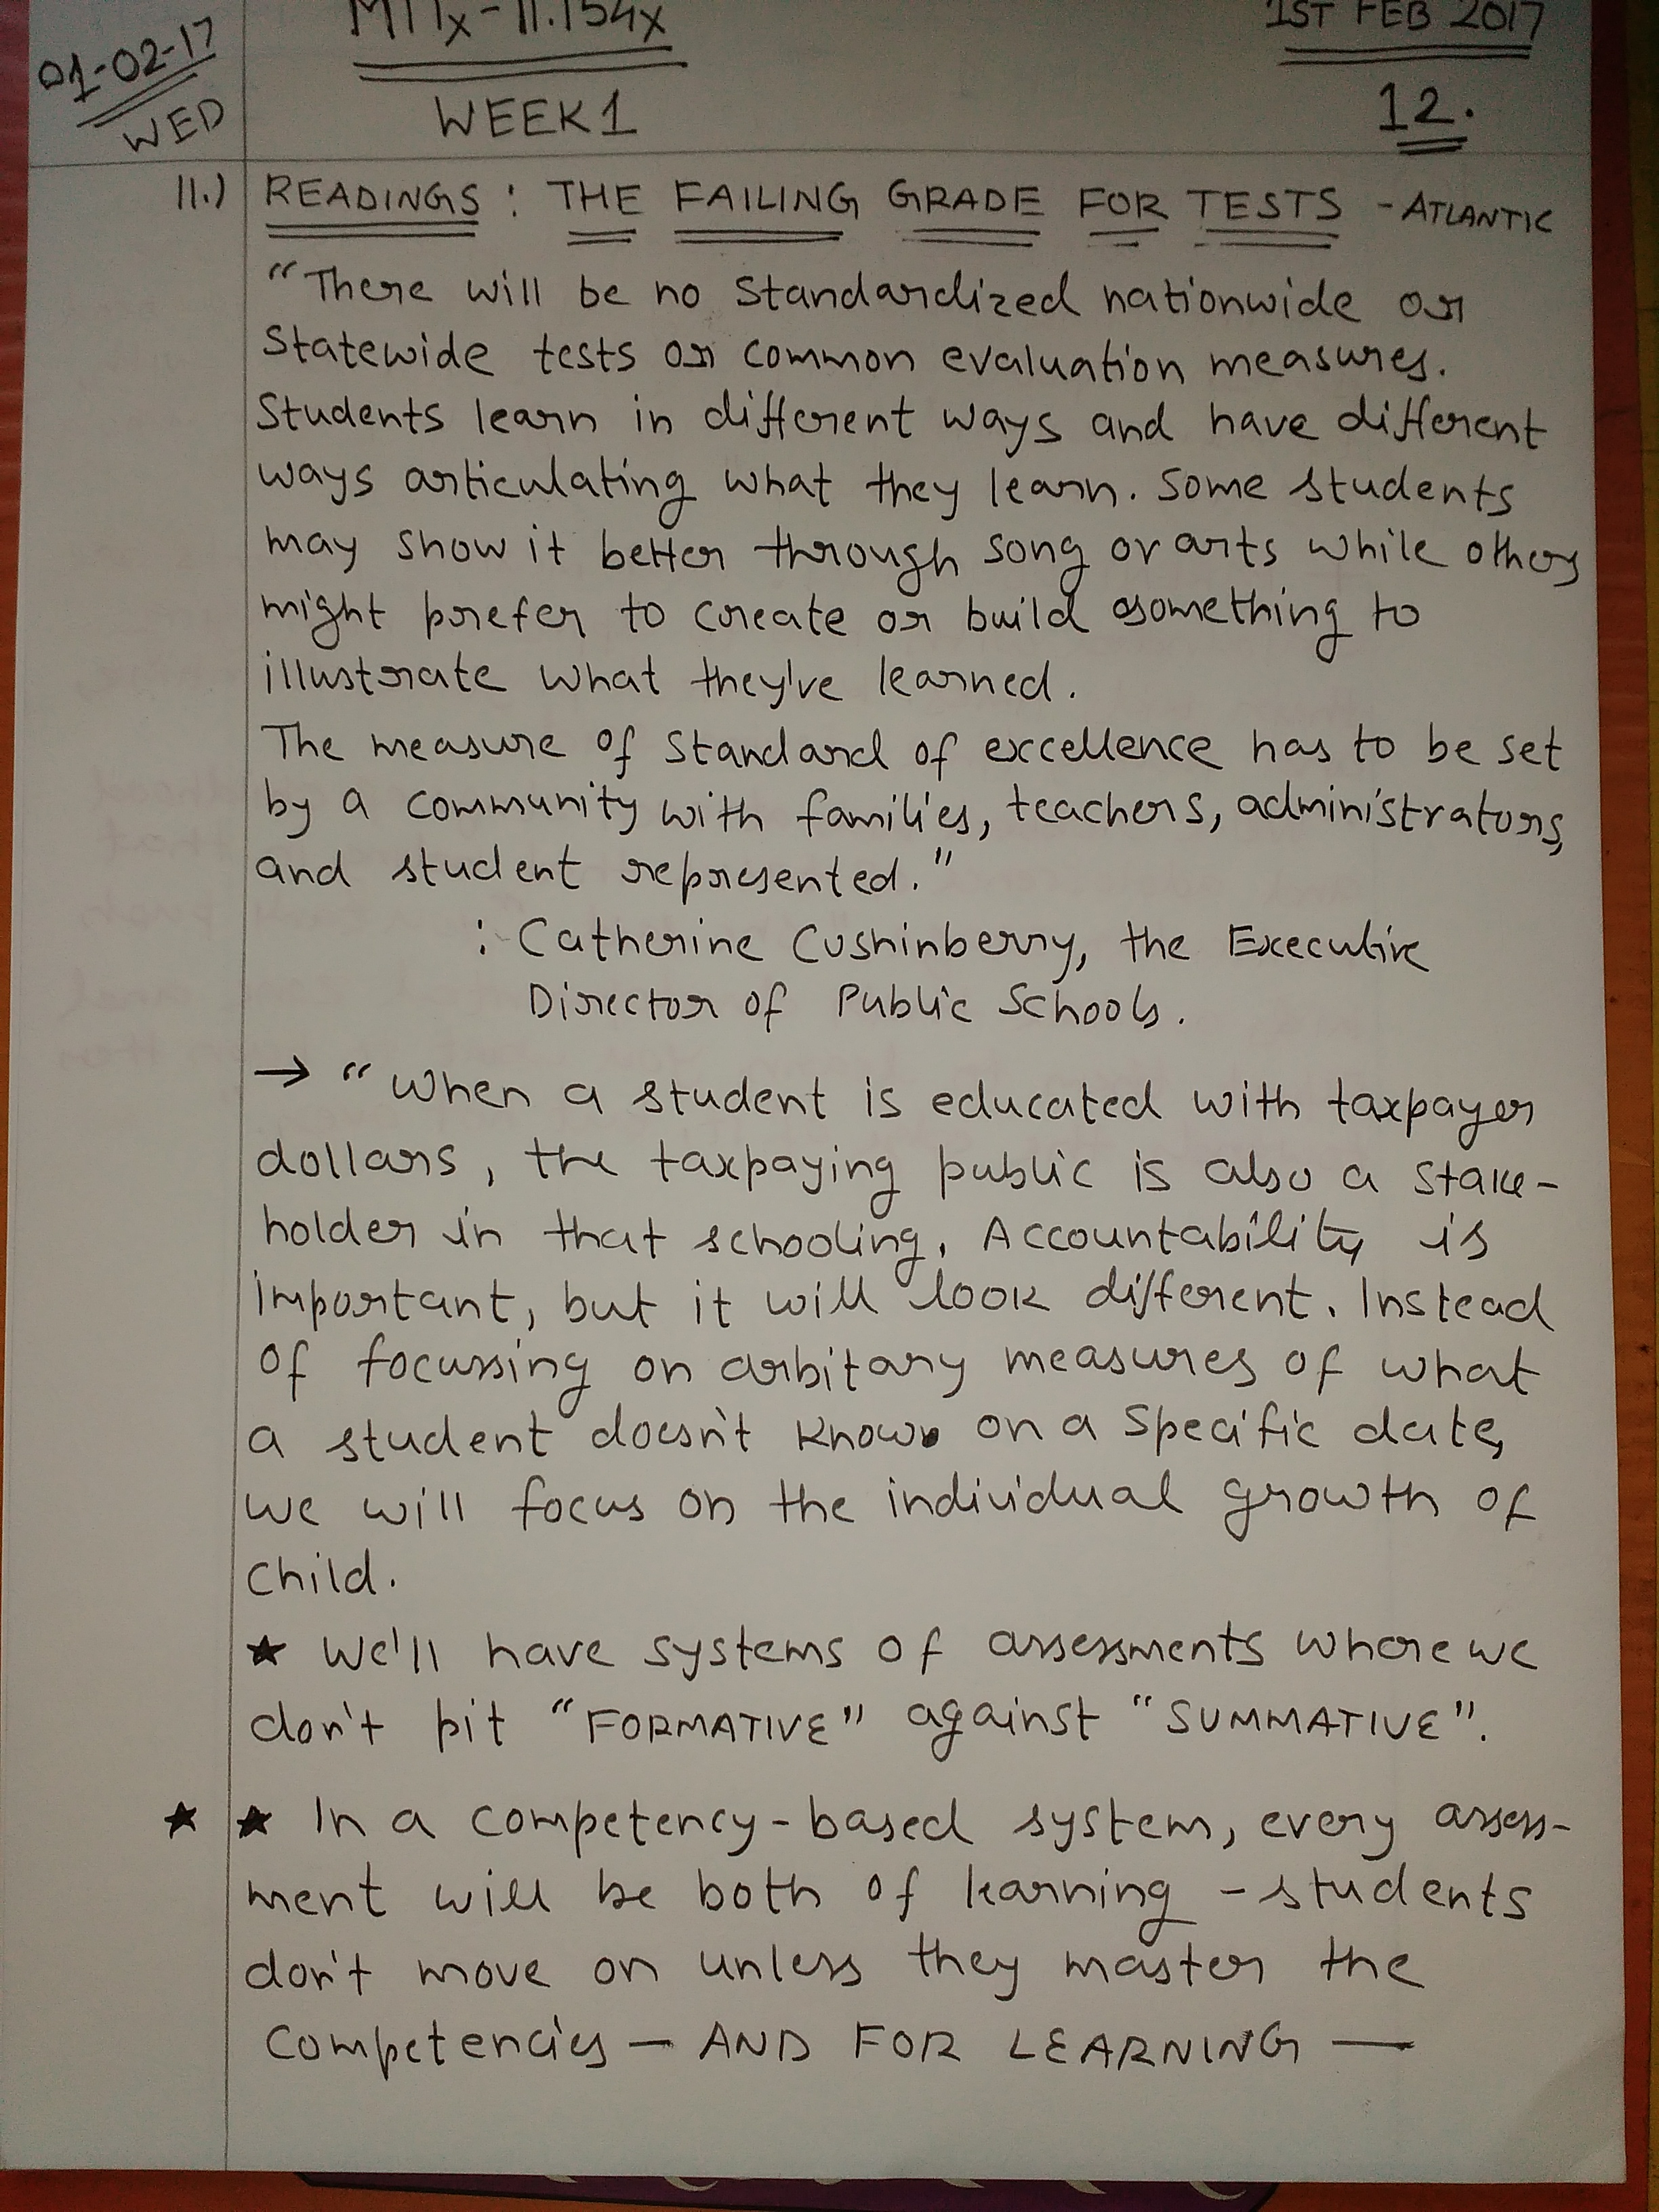 01-02-17
WED
MITx-11.154x
WEEK 1
1ST FEB 2017
12.
11.) READINGS : THE FAILING GRADE FOR TESTS - ATLANTIC
"There will be no standardized nationwide or
statewide tests or common evaluation measures.
Students learn in different ways and have different
ways articulating what they learn. Some students
may show it better through song or arts while others
might prefer to create or build something to
illustrate what they've learned.
The measure of standard of excellence has to be set
by a community with families, teachers, administrators,
and student represented."
: Catherine Cushinberry, the Executive
Director of Public Schools.
→ "When a student is educated with taxpayer
dollars, the taxpaying public is also a stake-
holder in that schooling. Accountability is
important, but it will look different. Instead
of focussing on arbitary measures of what
a student doesn't know on a specific date,
we will focus on the individual growth of
child.
★ We'll have systems of assessments where we
don't pit "FORMATIVE" against "SUMMATIVE".
★ ★ In a competency-based system, every assess-
ment will be both of learning - students
don't move on unless they master the
competencies — AND FOR LEARNING —